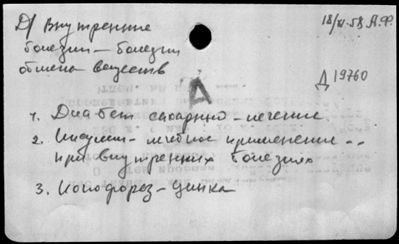 Д/ Внутренние
болезни – болезни
обмена веществ
18/XI.58 А.Ф.
Д 19760
Д
1. Диабет сахарный – лечение
2. Инсулин – лечебное применение –
при внутренних болезнях
3. Ионофорез – цинка